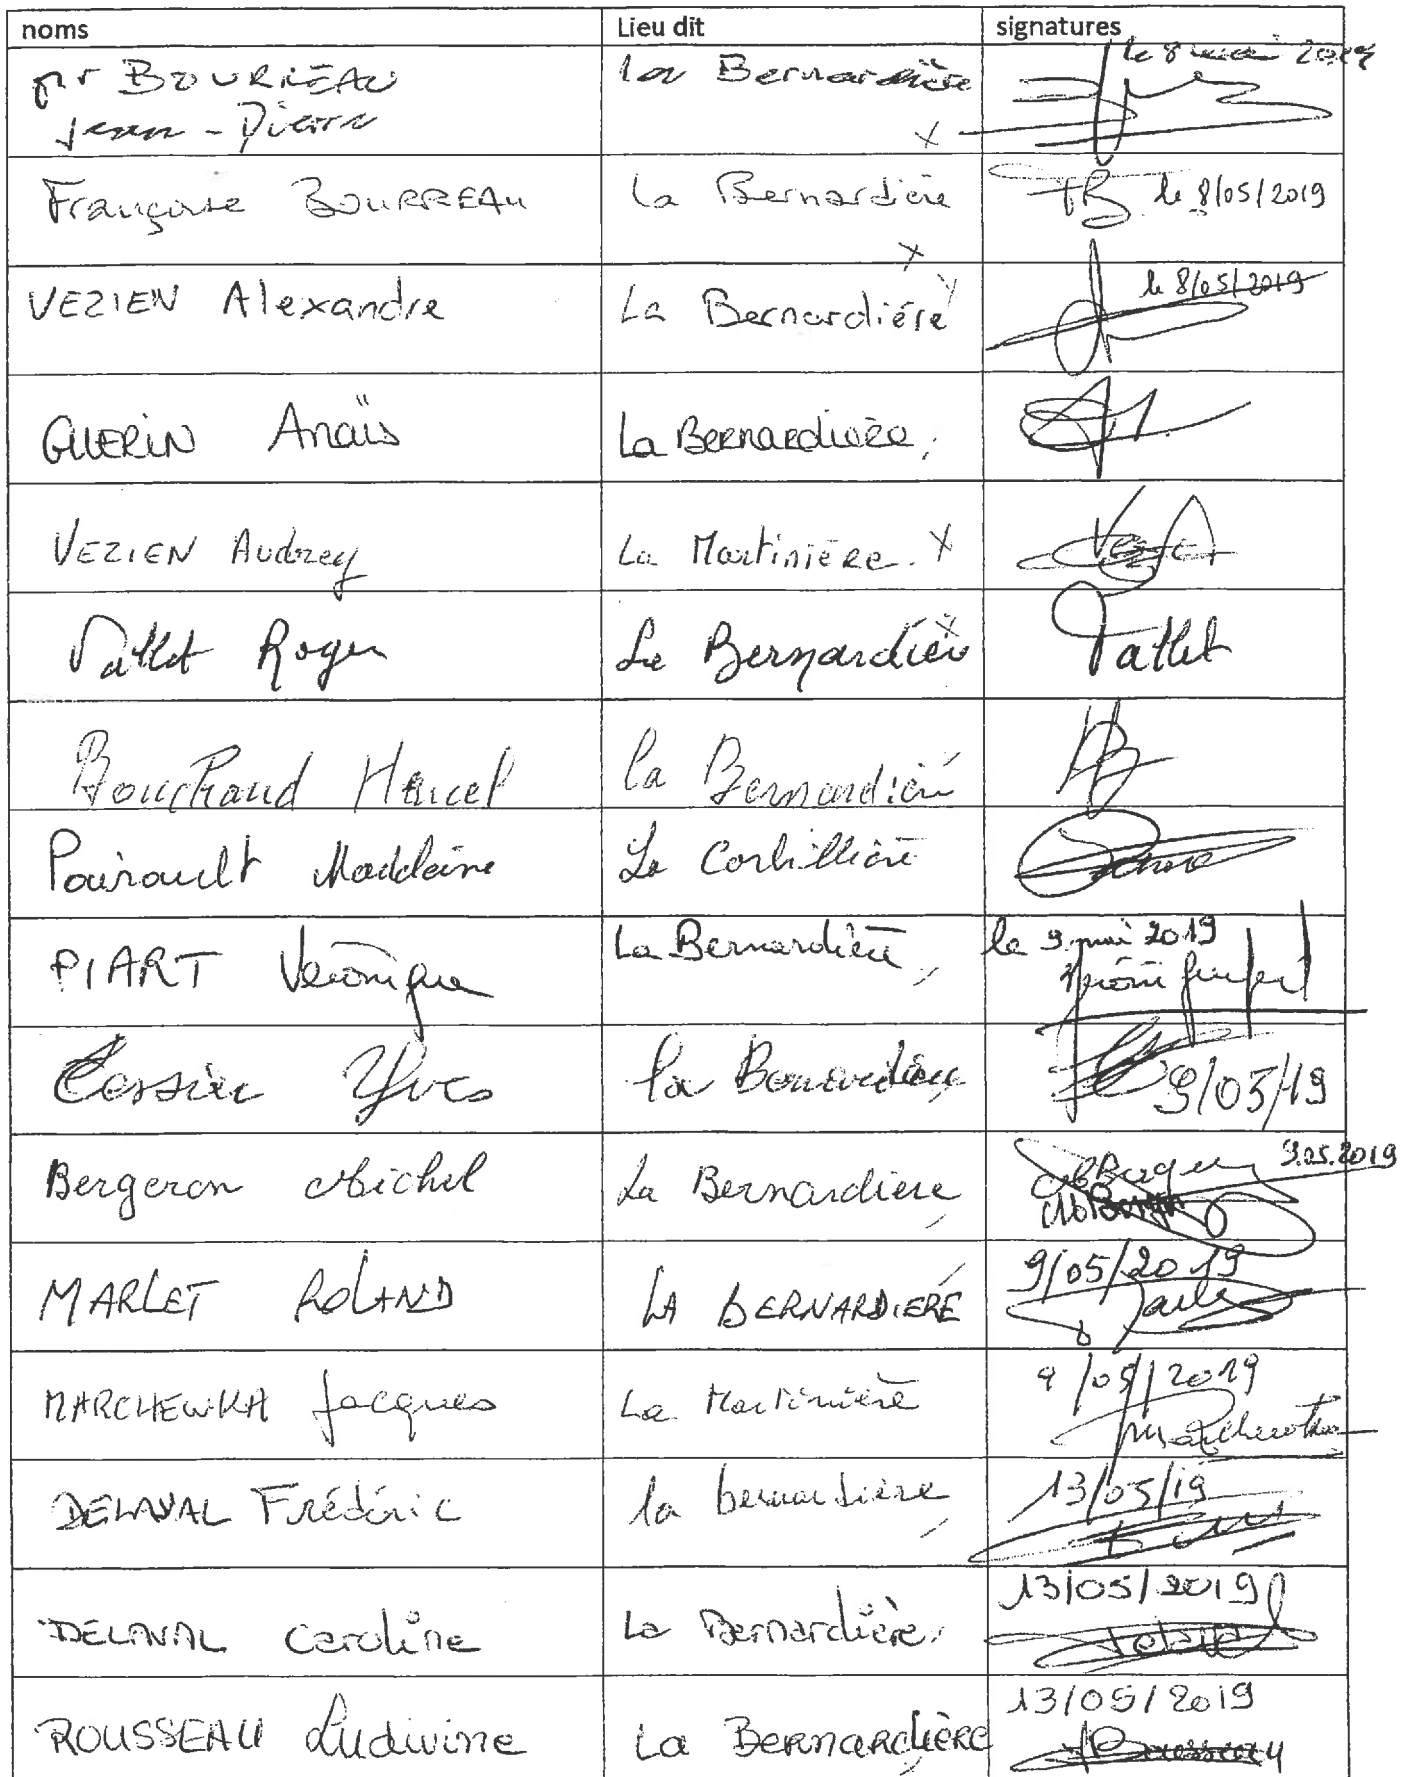 noms Lieu dit signatures
mr BOURREAU la Bernardière le 8 mai 2019
Jean-Pierre
Françoise BOURREAU La Bernardière FB le 8/05/2019
VEZIEN Alexandre La Bernardiére le 8/05/2019
GUERIN Anaïs La Bernardière
VEZIEN Audrey La Martinière. X
Vallet Roger La Bernardière Vallet
Bouchaud Marcel la Bernardière
Poirault Madeleine La Corbillière
PIART Véronique La Bernardière le 9 mai 2019
Tessier Yves la Bernardière 9/05/19
Bergeron Michel La Bernardiere 9.05.2019
MARLET ROLAND LA BERNARDIÉRE 9/05/2019
MARCHEWKA Jacques La Martinière 9/05/2019
Marchewka
DELAVAL Frédéric la bernardière 13/05/19
DELAVAL Caroline La Bernardière 13/05/2019
Delaval
ROUSSEAU Ludivine La Bernardière 13/05/2019
Rousseau